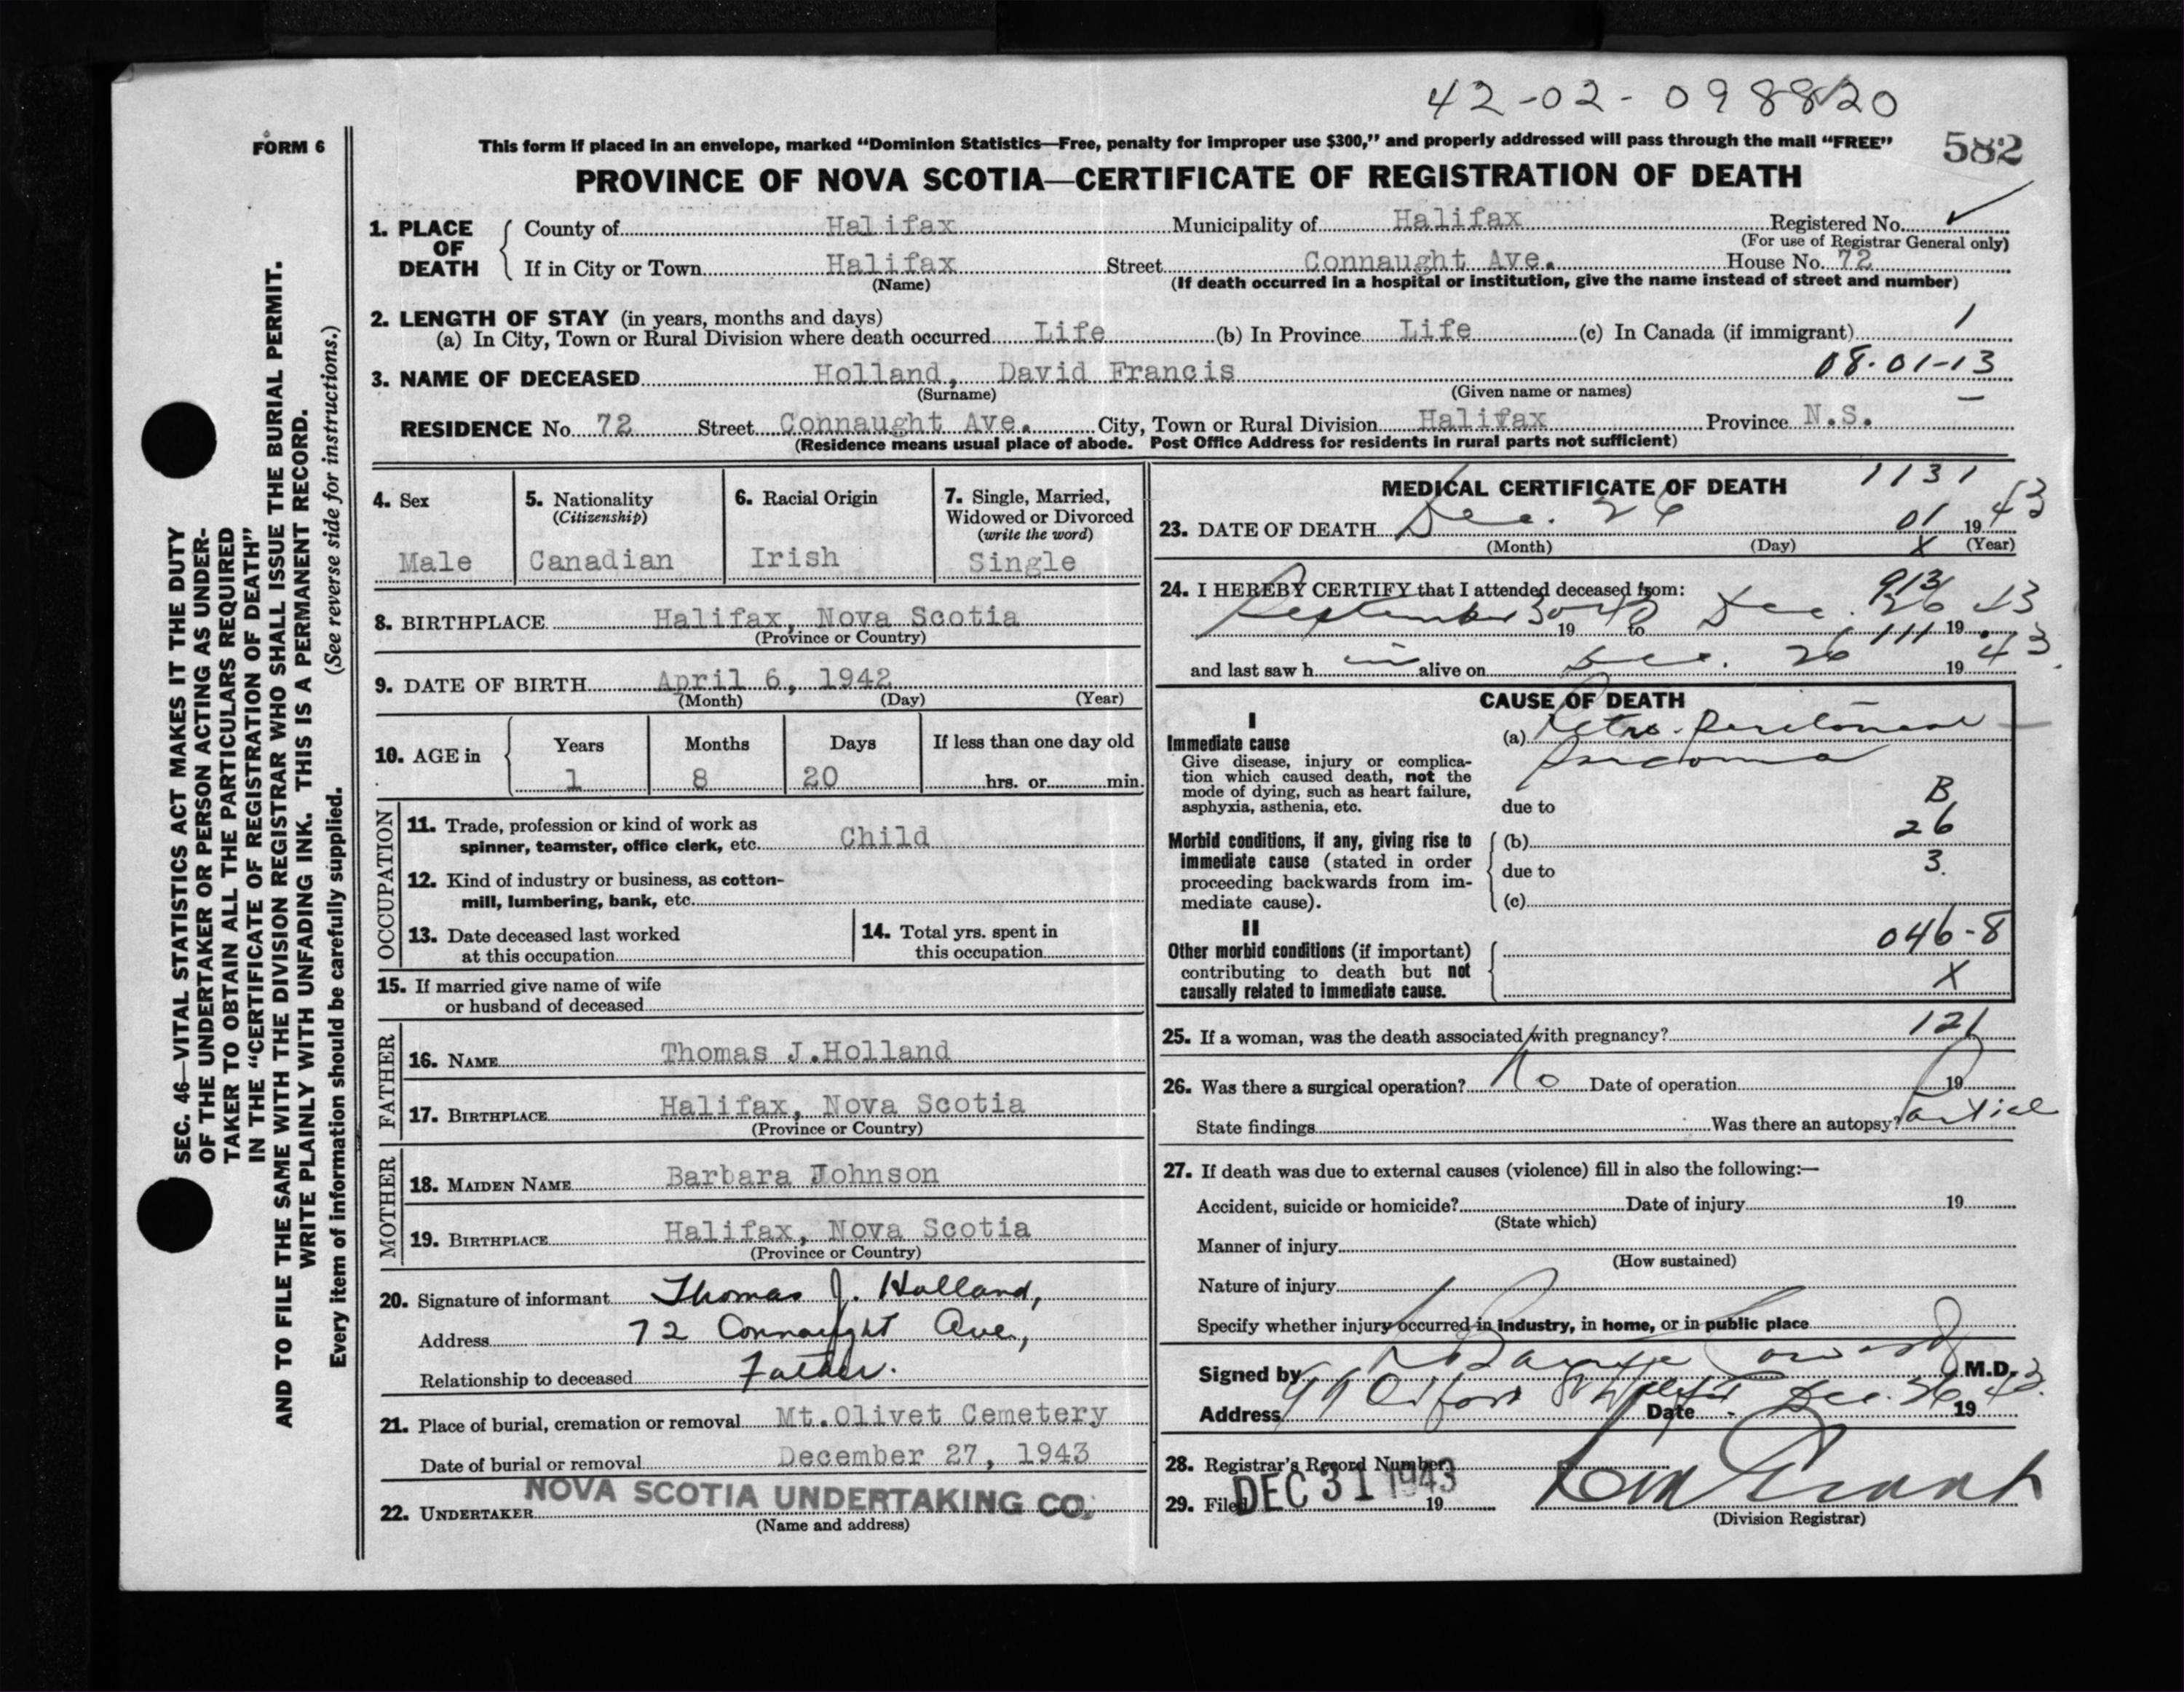 42-02-098820
FORM 6
This form if placed in an envelope, marked “Dominion Statistics—Free, penalty for improper use $300,” and properly addressed will pass through the mail “FREE”
582
PROVINCE OF NOVA SCOTIA—CERTIFICATE OF REGISTRATION OF DEATH
1. PLACE OF DEATH
County of Halifax Municipality of Halifax Registered No.
(For use of Registrar General only)
If in City or Town Halifax Street Connaught Ave. House No. 72
(Name) (If death occurred in a hospital or institution, give the name instead of street and number)
2. LENGTH OF STAY (in years, months and days)
(a) In City, Town or Rural Division where death occurred Life (b) In Province Life (c) In Canada (if immigrant) 1
3. NAME OF DECEASED Holland, David Francis 08-01-13
(Surname) (Given name or names)
RESIDENCE No. 72 Street Connaught Ave. City, Town or Rural Division Halifax Province N.S.
(Residence means usual place of abode. Post Office Address for residents in rural parts not sufficient)
4. Sex
Male
5. Nationality
(Citizenship)
Canadian
6. Racial Origin
Irish
7. Single, Married,
Widowed or Divorced
(write the word)
Single
8. BIRTHPLACE Halifax, Nova Scotia
(Province or Country)
9. DATE OF BIRTH April 6, 1942
(Month) (Day) (Year)
10. AGE in
Years Months Days If less than one day old
1 8 20 hrs. or min.
OCCUPATION
11. Trade, profession or kind of work as
spinner, teamster, office clerk, etc. Child
12. Kind of industry or business, as cotton-
mill, lumbering, bank, etc.
13. Date deceased last worked
at this occupation
14. Total yrs. spent in
this occupation
15. If married give name of wife
or husband of deceased
FATHER
16. NAME Thomas J.Holland
17. BIRTHPLACE Halifax, Nova Scotia
(Province or Country)
MOTHER
18. MAIDEN NAME Barbara Johnson
19. BIRTHPLACE Halifax, Nova Scotia
(Province or Country)
20. Signature of informant Thomas J. Holland,
Address 72 Connaught Ave,
Relationship to deceased Father.
21. Place of burial, cremation or removal Mt.Olivet Cemetery
Date of burial or removal December 27, 1943
22. UNDERTAKER NOVA SCOTIA UNDERTAKING CO.
(Name and address)
MEDICAL CERTIFICATE OF DEATH 1131
23. DATE OF DEATH Dec. 26 01 1943
(Month) (Day) X (Year)
24. I HEREBY CERTIFY that I attended deceased from: 913
September 30 19 43 to Dec. 26 19 43
111
and last saw h im alive on Dec. 26 19 43.
CAUSE OF DEATH
I
Immediate cause
Give disease, injury or complica-
tion which caused death, not the
mode of dying, such as heart failure,
asphyxia, asthenia, etc.
(a) Retro-Peritoneal
Sarcoma
due to B
Morbid conditions, if any, giving rise to
immediate cause (stated in order
proceeding backwards from im-
mediate cause).
(b) 26
due to 3.
(c)
II
Other morbid conditions (if important)
contributing to death but not
causally related to immediate cause.
046-8
X
25. If a woman, was the death associated with pregnancy? 121
26. Was there a surgical operation? No Date of operation 19
State findings Was there an autopsy? Partial
27. If death was due to external causes (violence) fill in also the following:—
Accident, suicide or homicide? Date of injury 19
(State which)
Manner of injury
(How sustained)
Nature of injury
Specify whether injury occurred in industry, in home, or in public place
Signed by M.D.
Address Oxford St Date Dec. 26 19 43.
28. Registrar's Record Number
29. Filed DEC 31 1943 19
(Division Registrar)
SEC. 46—VITAL STATISTICS ACT MAKES IT THE DUTY
OF THE UNDERTAKER OR PERSON ACTING AS UNDER-
TAKER TO OBTAIN ALL THE PARTICULARS REQUIRED
IN THE “CERTIFICATE OF REGISTRATION OF DEATH”
AND TO FILE THE SAME WITH THE DIVISION REGISTRAR WHO SHALL ISSUE THE BURIAL PERMIT.
WRITE PLAINLY WITH UNFADING INK. THIS IS A PERMANENT RECORD.
Every item of information should be carefully supplied. (See reverse side for instructions.)